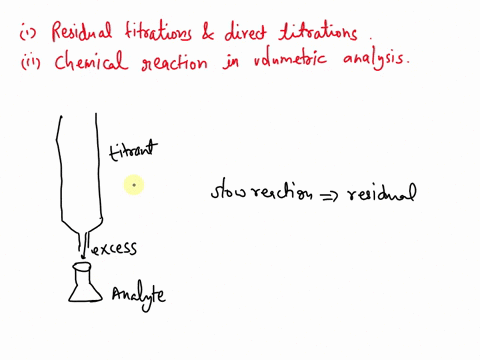 (i) Residual titrations & direct titrations.
(ii) Chemical reaction in volumetric analysis.
titrant
slow reaction ⇒ residual
excess
Analyte